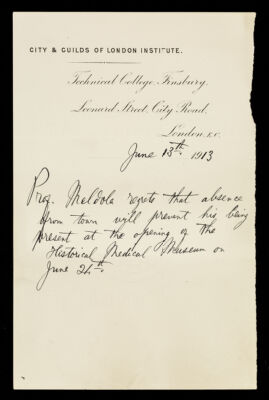 CITY & GUILDS OF LONDON INSTITUTE.
Technical College, Finsbury,
Leonard Street, City Road,
London. E.C.
June 13th. 1913
Prof. Meldola regrets that absence
from town will prevent his being
present at the opening of the
Historical Medical Museum on
June 24th.